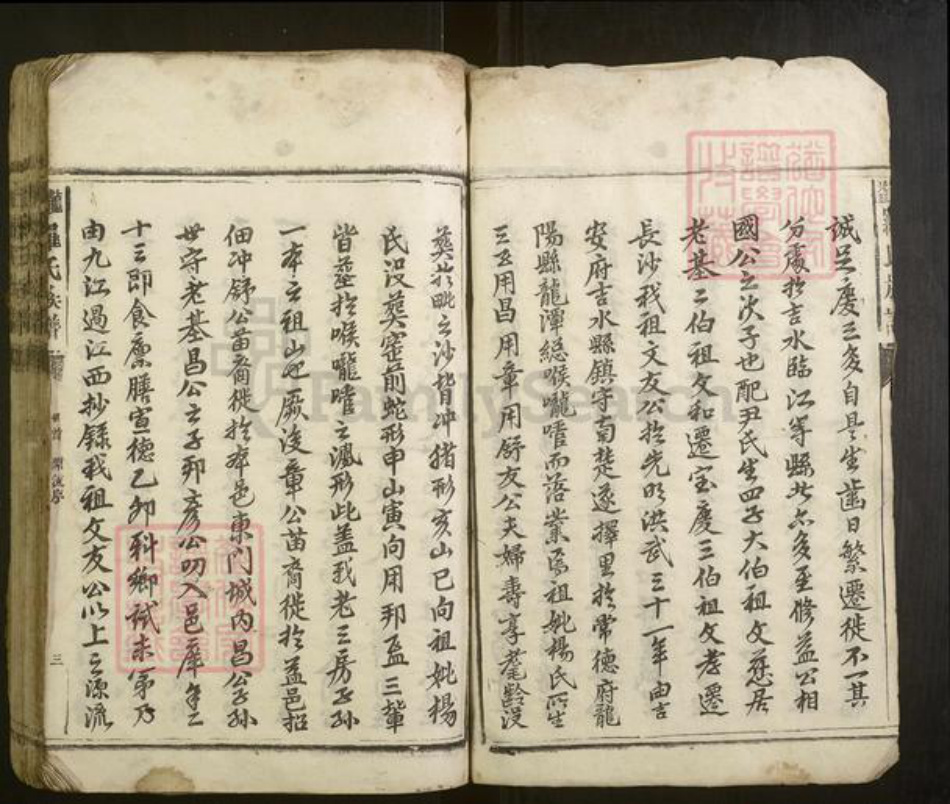 誠足慶三多自是生齒日繁遷徙不一其
分處於吉水臨江等縣者亦多至修益公相
國公之次子也配尹氏生四子大伯祖文慈居
老基二伯祖文和遷寶慶三伯祖文孝遷
長沙我祖文友公於先明洪武三十一年由吉
安府吉水縣鎮守南楚遂擇里於常德府龍
陽縣龍潭總喉嚨嗜而落業焉祖妣楊氏所生
三五用昌用章用舒友公夫婦壽享耄齡没
葬於毗之沙背冲猪形亥山巳向祖妣楊
氏没葬窑前蛇形申山寅向用邦孟三輩
皆塟於喉嚨嗜之溈形此盖我老三房子孫
一本之祖山也厥後章公苗裔徙於益邑招
佃冲舒公苗裔徙於本邑東门城内昌公子孫
世守老基昌公之子邦彦公叨入邑庠年二
十三即食廪膳宣德乙卯科鄉試未第乃
由九江過江西抄錄我祖文友公以上之源流
羅氏族譜
三
FamilySearch